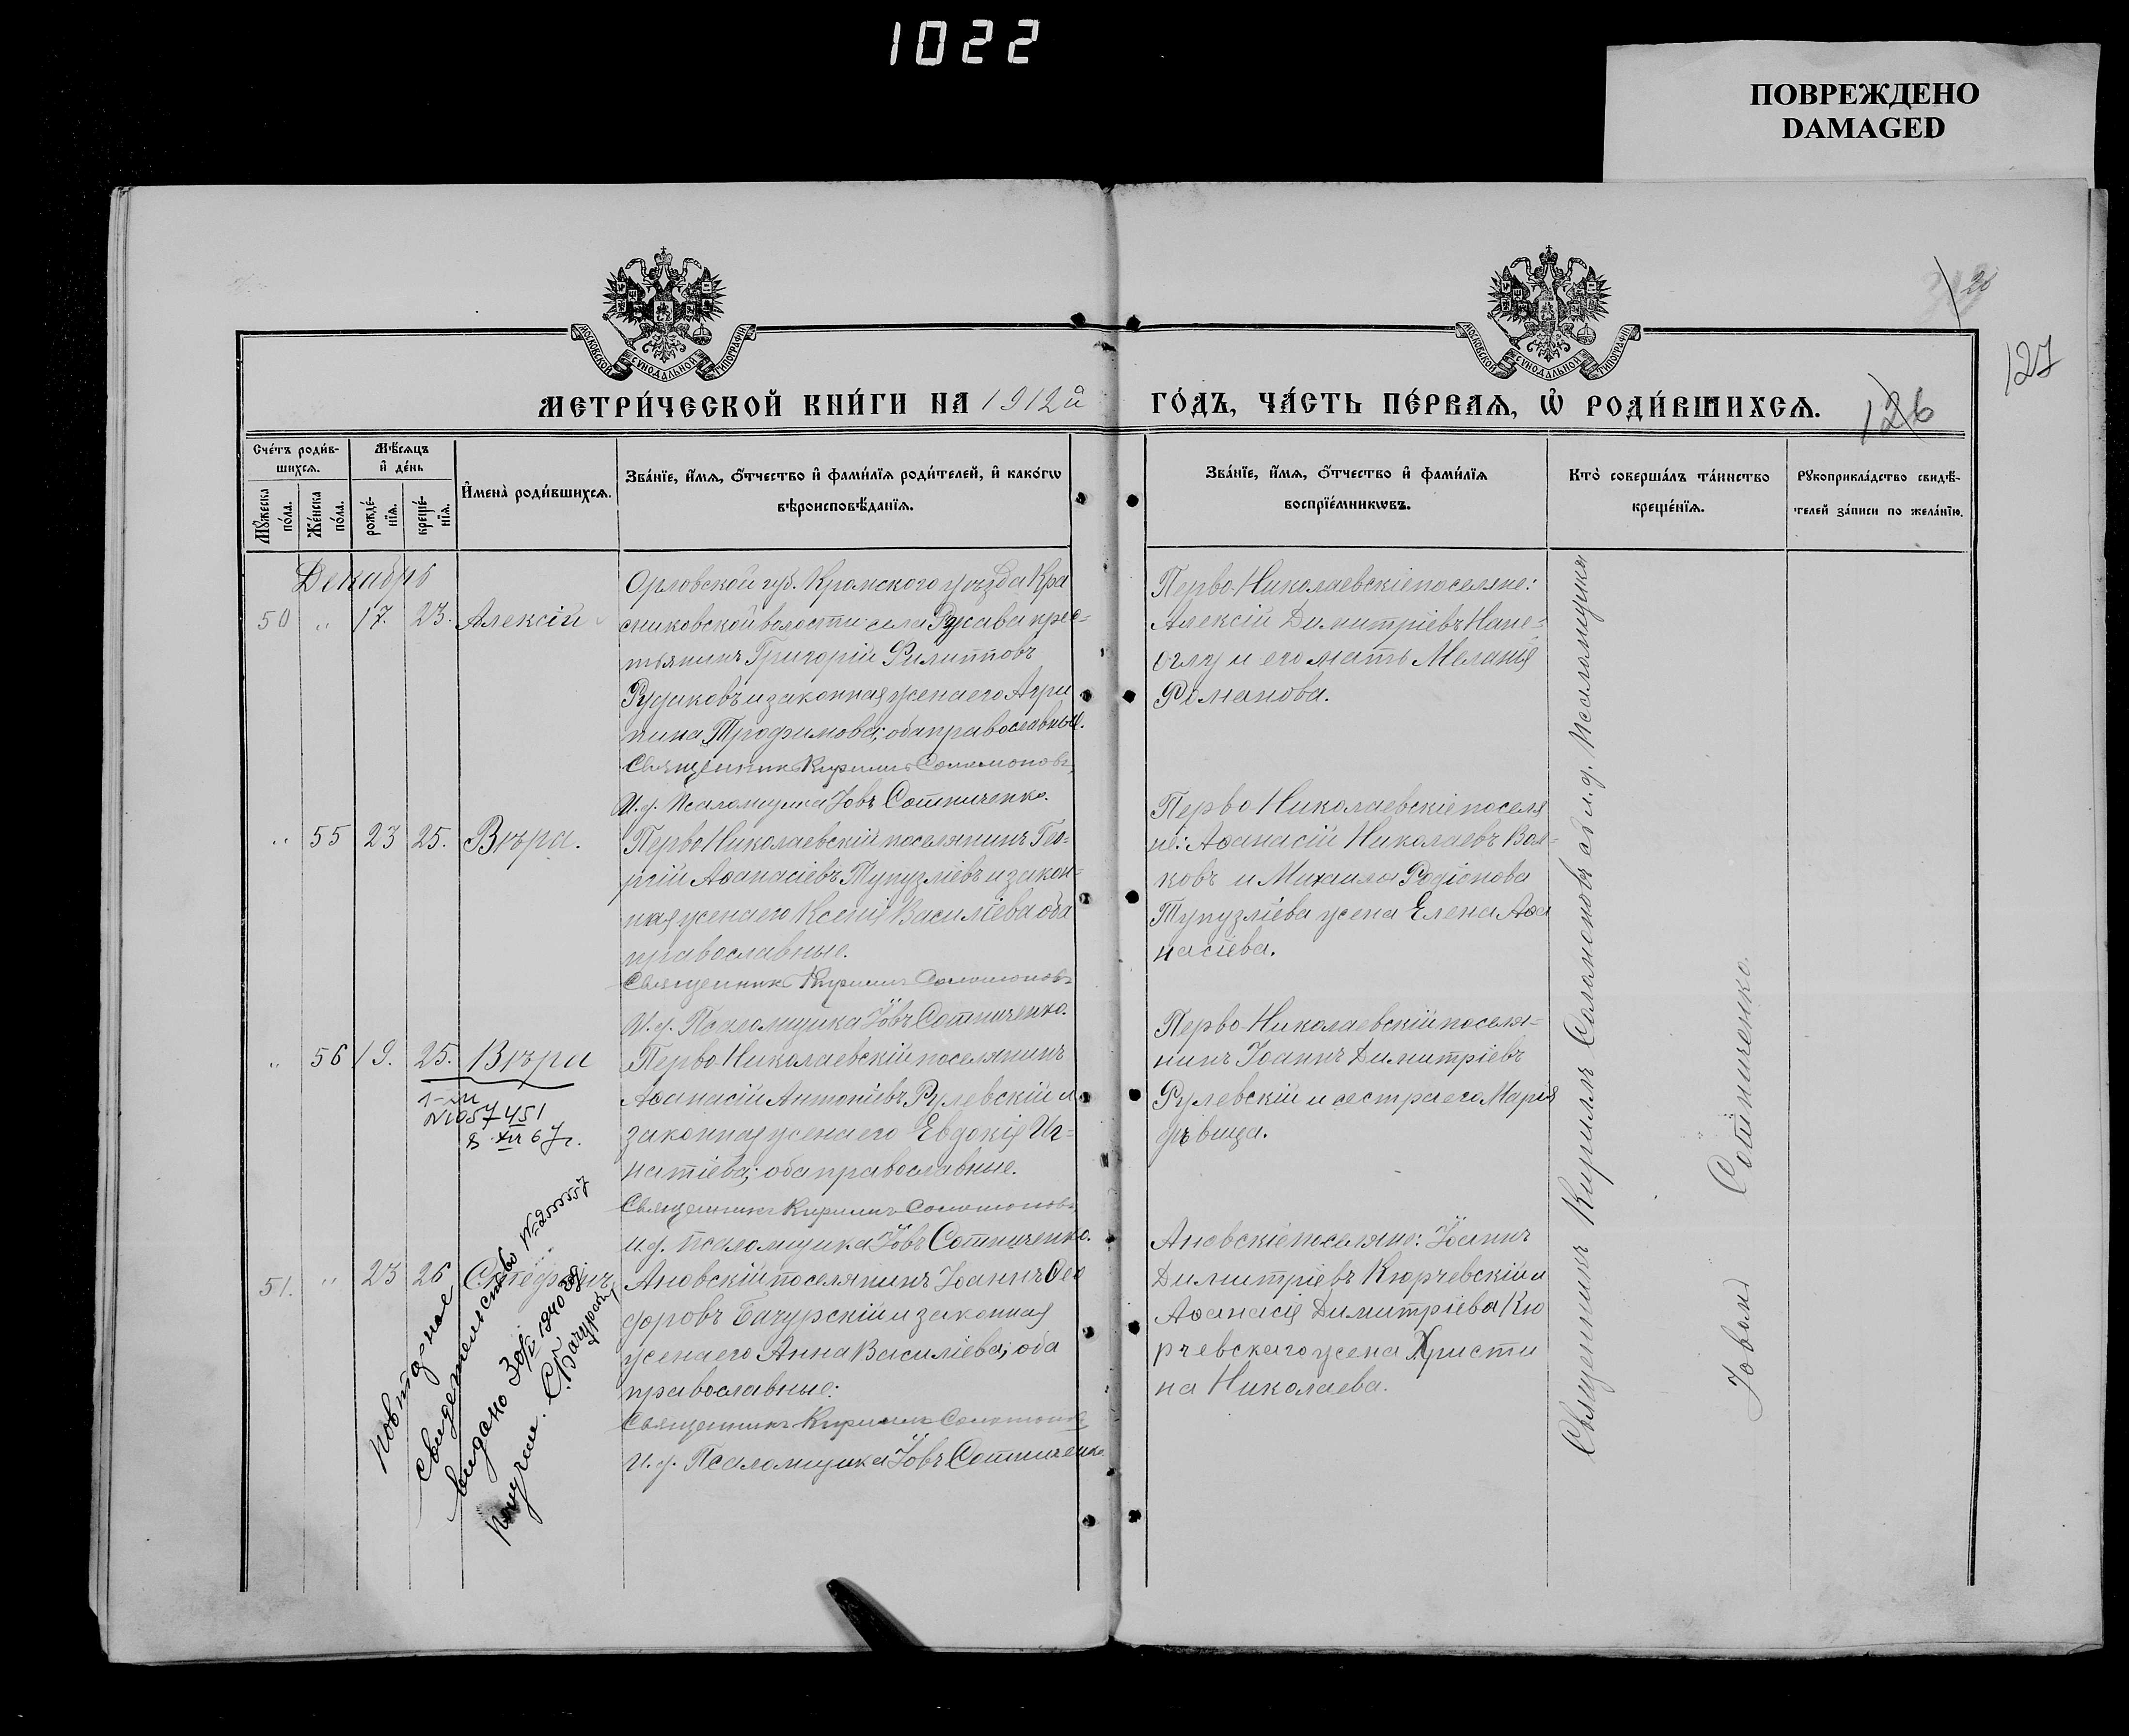 1022
ПОВРЕЖДЕНО
DAMAGED
МОСКОВСКОЙ СУНОДАЛЬНОЙ ТИПОГРАФІИ
МОСКОВСКОЙ СУНОДАЛЬНОЙ ТИПОГРАФІИ
20
127
126
МЕТРИ́ЧЕСКОЙ КНИ́ГИ НА 1912й ГО́ДЪ, ЧА́СТЬ ПЕ́РВАЯ, Ѡ҆ РОДИ́ВШИХСЯ.
Сче́тъ роди́в-
шихся.
Му́жеска по́ла.
Же́нска по́ла.
Мѣ́сяцъ
и҆ де́нь
рожде́-
нїя.
креще́-
нїя.
И҆мена̀ роди́вшихся.
Зва́нїе, и҆́мя, ѻ҆́тчество и҆ фами́лїя роди́телей, и҆ како́гѡ
вѣроисповѣ́данїя.
Зва́нїе, и҆́мя, ѻ҆́тчество и҆ фами́лїя
воспрїе́мникѡвъ.
Кто̀ соверша́лъ та́инство
креще́нїя.
Рꙋкоприкла́дство свидѣ́-
телей за́писи по жела́нїю.
Декабрь
50 " 17. 23. Алексій
Орловской губ. Кромского уѣзда Кра
сниковской волости села Ржава крес-
тьянинъ Григорій Филипповъ
Рудаковъ и законная жена его Агри
пина Трофимова; оба православные.
Священникъ Кириллъ Соломоновъ,
И.д. Псаломщика Іовъ Сотниченко.
Перво-Николаевскіе поселяне:
Алексій Димитріевъ Напе-
оглу и его мать Меланія
Романова.
" 55 23 25. Вѣра.
Перво Николаевскій поселянинъ Гео-
ргій Аѳанасіевъ Тупузліевъ и закон-
ная жена его Ксенія Василіева оба
православные.
Священникъ Кириллъ Соломоновъ
И.д. Псаломщика Іовъ Сотниченко.
Перво Николаевскіе поселя
не: Аѳанасій Николаевъ Вол-
ковъ и Михаила Родіонова
Тупузліева жена Елена Аѳа
насіева.
" 56 19. 25. Вѣра
Перво-Николаевскій поселянинъ
Аѳанасій Антоніевъ Рулевскій и
законная жена его Евдокія Иг-
натіева; оба православные.
Священникъ Кириллъ Соломоновъ
И.д. псаломщика Іовъ Сотниченко.
Перво-Николаевскій поселя-
нинъ Іоаннъ Димитріевъ
Рулевскій и сестра его Марія
дѣвица.
8 XII 67г.
51. " 23 26 Стефанъ
Ановскій поселянинъ Іоаннъ Ѳео
доровъ Бачурскій и законная
жена его Анна Василіева; оба
православные:
Священникъ Кириллъ Соломоновъ
И.д. Псаломщика Іовъ Сотниченко
Ановскіе поселяне: Іоаннъ
Димитріевъ Кюрчевскій и
Аѳанасія Димитріева Кю
рчевскаго жена Христи
на Николаева.
Повторное
свидетельство
выдано
получил. С. Бачурский
Священникъ Кириллъ Соломоновъ съ и.д. Псаломщика
Іовомъ Сотниченко.